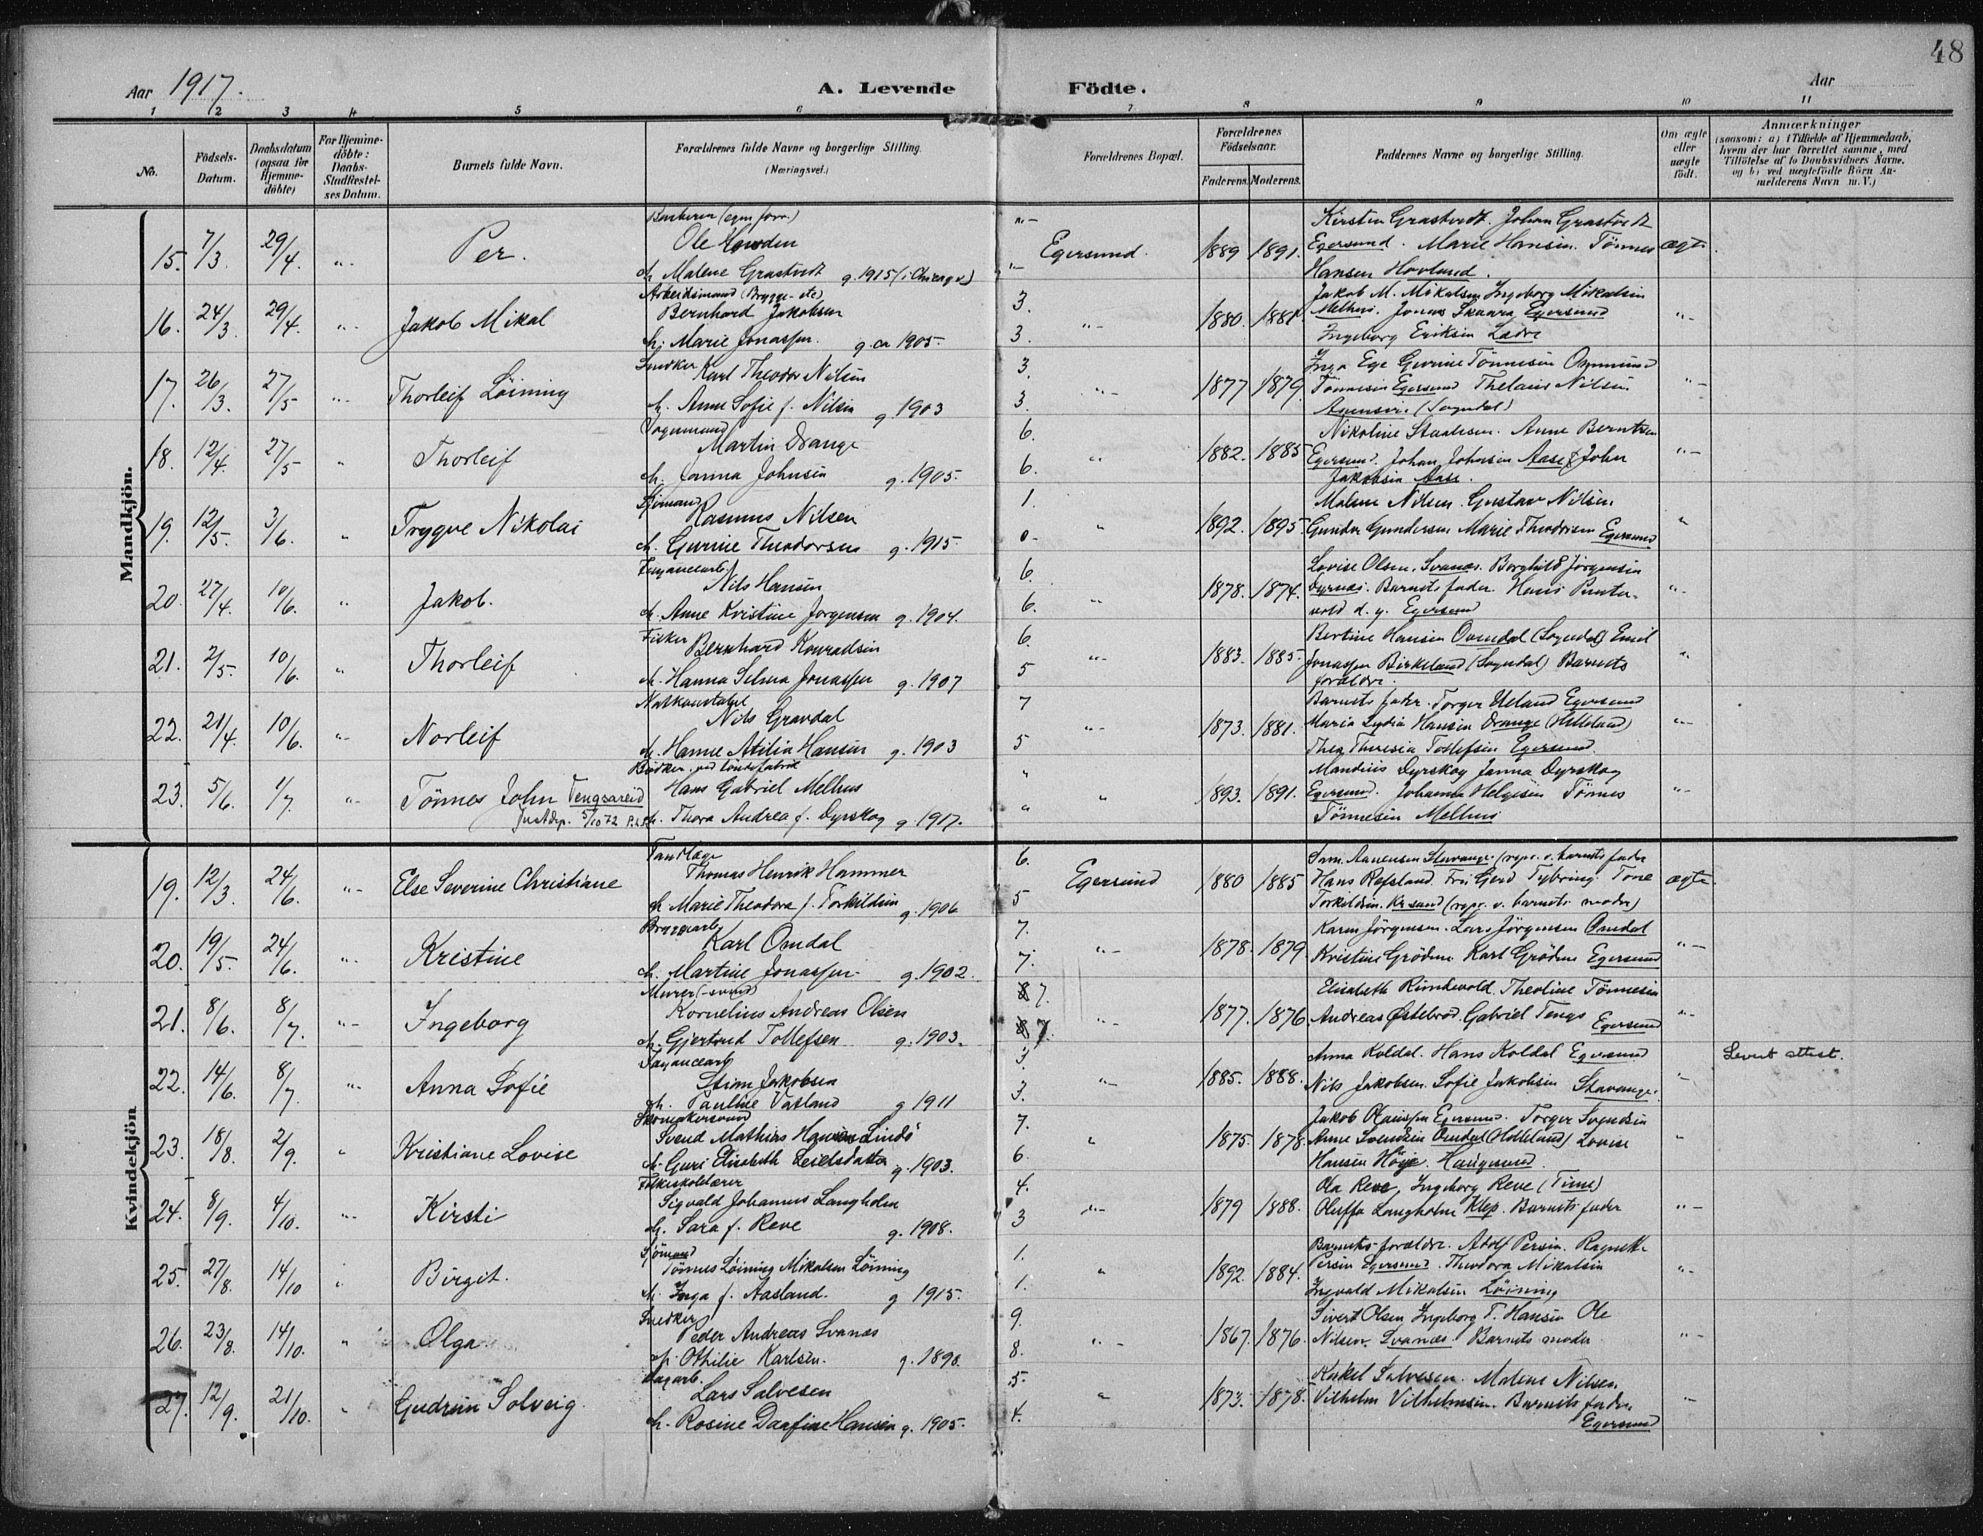 48
Aar 1917. A. Levende Födte. Aar
1 2 3 4 5 6 7 8 9 10 11
No.
Födsels-Datum.
Daabsdatum (ogsaa for Hjemme-döbte)
For Hjemme-döbte: Daabs-Stadfæstel-ses Datum.
Barnets fulde Navn.
Forældrenes fulde Navne og borgerlige Stilling. (Næringsvei.)
Forældrenes Bopæl.
Forældrenes Födselsaar.
Faderens. Moderens.
Faddernes Navne og borgerlige Stilling.
Om ægte eller uægte födt.
Anmærkninger
(saasom: a) i Tilfælde af Hjemmedaab,
hvem der har forrettet samme, med
Tilföielse af to Daabsvidners Navne.
og b) ved uægtefödte Börn An-
melderens Navn m. V.)
Mandkjön.
15. 7/3. 29/4. „- Per.
Ole
M. Malene Grastvedt g. 1915 (i Chicago)
Egersund. 1889 1891.
Kirsten Grastvedt. Johan Grastvedt
Egersund. Marie Hansen. Tönnes
Hansen Hovland.
ægte.
16. 24/3. 29/4. „- Jakob Mikal
Arbeidsmand (Brygge- etc)
Bernhard Jakobsen
h. Marie Jonassen. g. ca 1905.
3. 3. „- 1880. 1881.
Jakob M. Mikalsen Ingeborg Mikalsen
Melhus. Jonas Skaara Egersund
Ingeborg Eriksen
„-
17. 26/3. 27/5 „- Thorleif Löining
Snedker Karl Theodor Nilsen
h. Anne Sofie f. Nilsen g. 1903
3. 3. „- 1877 1879.
Inga Ege Gurine Tönnesen
Tönnesen Egersund Nilsen
(Sogndal)
„-
18. 12/4. 27/5 „ Thorleif
Martin Drange
h. Janna Johnsen g. 1905.
6. 6. „ 1882. 1885
Nikoline Staalesen. Anne Berntsen
Egersund. Johan Johnsen Aase & John
Jakobsen Aase.
„-
19. 12/5. 3/6. „ Trygve Nikolai
Sjömand Rasmus Nilsen
h. Gurine Theodorsen g. 1915.
1. 0- „ 1892. 1895.
Malene Nilsen. Gustav Nilsen
Gundersen Marie Theodorsen Egersund
„
20. 27/4. 10/6. „ Jakob.
Fayancearb.
Nils Hansen
h. Anne Kristine Jørgensen g. 1904.
6. 6. „ 1878. 1874.
Lovise Olsen. Svanæs. Borghild Jörgensen
Dyrnæs. Barnets fader. Hans Punter-
vold d. y. Egersund
„-
21. 2/5. 10/6. „ Thorleif
Fisker Bernhard Konradsen
h. Hanna Selma Jonassen g. 1907
6. 5 „- 1883. 1885.
Bertine Hansen Omdal (Sogndal) Emil
Jonassen Birkeland (Sogndal) Barnets
forældre.
„
22. 21/4. 10/6. „- Norleif
Natkonstabel
Nils Gravdal
h. Hanne Atilia Hansen g. 1903
7 5 „- 1873. 1881.
Barnets fader. Torger Ueland Egersund
Maria Lydia Hansen Drange (Helleland)
Thea Theresia Tollefsen Egersund.
„-
23. 5/6. 1/7. „- Tönnes John Tengsareid
Justdep. 5/10 72
Bödker ved töndefabrik
Hans Gabriel Melhus
h. Thora Andrea f. Dyrskog g 1917.
„ „ „ 1893. 1891.
Mandius Dyrskog Janna Dyrskog
Egersund. Johanna Helgesen Tönnes
Tönnesen Melhus
„-
Kvindekjön
19. 12/3. 24/6. „- Else Severine Christiane
Tandlæge
Thomas Henrik Hammer
h Marie Theodora f. Torkildsen g. 1906
6. 5 Egersund 1880 1885
Sam. Aanensen Stavanger (repr. v. barnets fader
Hans Refsland Frk Gerd Tybring Tone
Torkildsen. Krsand (repr. v. barnets moder)
ægte.
20. 19/5. 24/6. „- Kristine
Bryggearb.
Karl Omdal
h. Martine Jonassen. g. 1902.
7. 7. „- 1878. 1879.
Karen Jörgensen. Lars Jörgensen Omdal
Kristine Grödem Karl Grödem Egersund
„-
21. 8/6. 8/7. „- Ingeborg
Murer (-svend)
Kornelius Andreas Olsen
h. Gjertrud Tollefsen g. 1903.
7. 7. „- 1877. 1876
Elisabeth Rundevold. Theoline Tönnesen
Andreas Østebrod. Gabriel Tengs
Egersund
„
22. 14/6. 8/7. „- Anna Sofie
Fayancearb.
Stian Jakobsen
h. Pauline Vatland g 1911
3. 3. „- 1885. 1888.
Anna Koldal. Hans Koldal Egersund
Nils Jakobsen. Sofie Jakobsen Stavanger.
„
Levert attest.
23. 18/8. 2/9. „ Kristiane Lovise
Skomakersvend
Svend Mathias Hansen Lindö
h. Guri Elisabeth g. 1903.
7. 6. „ 1875. 1878.
Jakob Olaussen Egersund. Torger Svendsen
Anne Svendsen Omdal (Helleland) Lovise
Hansen Höije. Haugesund.
„
24. 8/9. 4/10. „- Kirsti
Folkeskolelærer
Sigvald Johannes Langholm
h. Sara f. Reve g. 1908.
4. 3 „- 1879 1888.
Ola Reve, Ingeborg Reve (Time)
Oluffa Langholm Klep. Barnets fader
„-
25. 27/8. 14/10 „ Birgit.
Sjömand
Tönnes Löining Mikalsen Löining
h. Inga f. Aasland. g 1915.
1. 1. „ 1892. 1884.
Barnets forældre. Adolf Persen. Ragnette
Persen Egersund. Theodora Mikalsen
Ingvald Mikalsen Löining
„-
26. 23/8. 14/10. „ Olga
Snedker
Peder Andreas Svanæs
h. Othilie Karlsen. g. 1890.
9. 8. „- 1867. 1876.
Sivert Olsen Ingeborg T. Hansen Ole
Nilsen. Svanæs. Barnets moder
„-
27. 12/9. 21/10. „ Gudrun Solveig
Dagarb.
Lars Salvesen
h. Rosine Hansen g. 1905.
5. 4. „ 1873. 1878.
Salvesen. Malene Nilsen
Vilhelm Vilhelmsen. Barnets fader
Egersund
„